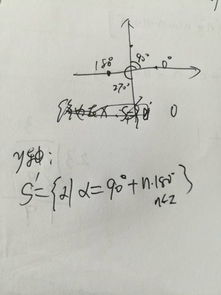 90°
180° 0°
270°
0
y轴:
S'={α|α=90°+n·180°
n∈Z}